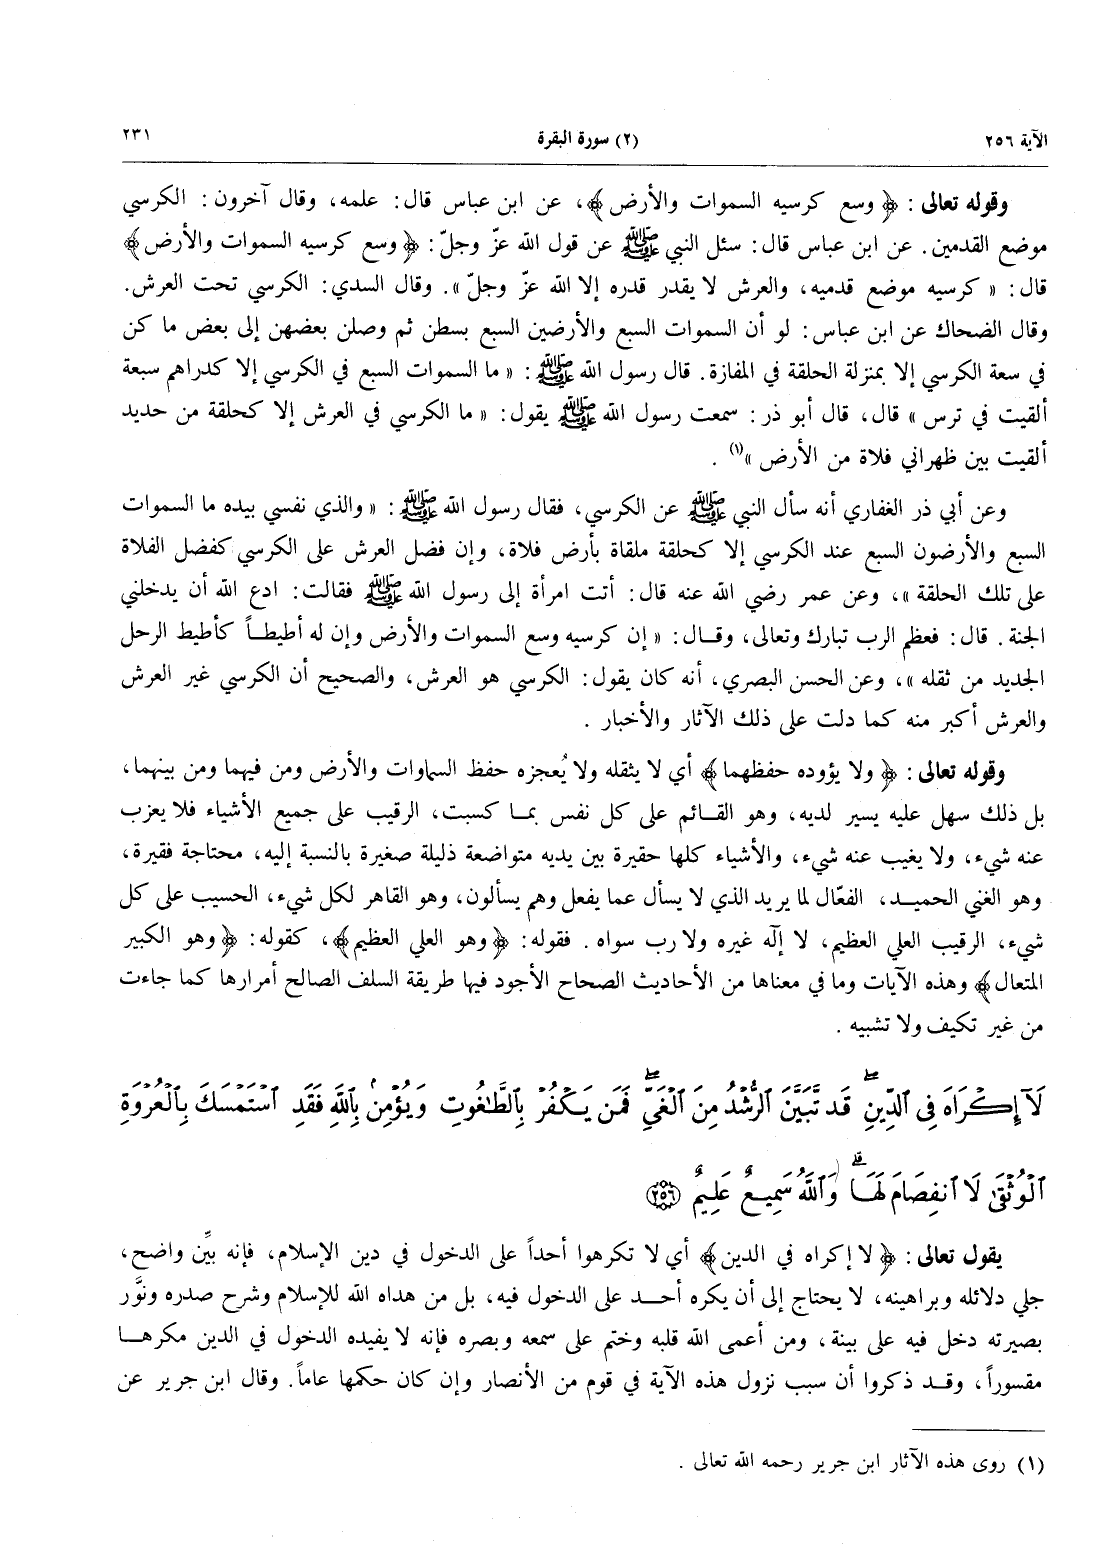 الآية ٢٥٦ (٢) سورة البقرة ٢٣١
وقوله تعالى : ﴿ وسع كرسيه السموات والأرض ﴾، عن ابن عباس قال: علمه، وقال آخرون: الكرسي
موضع القدمين. عن ابن عباس قال: سئل النبي ﷺ عن قول الله عزّ وجلّ: ﴿ وسع كرسيه السموات والأرض ﴾
قال: « كرسيه موضع قدميه، والعرش لا يقدر قدره إلا الله عزّ وجلّ ». وقال السدي: الكرسي تحت العرش.
وقال الضحاك عن ابن عباس: لو أن السموات السبع والأرضين السبع بسطن ثم وصلن بعضهن إلى بعض ما كن
في سعة الكرسي إلا بمنزلة الحلقة في المفازة. قال رسول الله ﷺ : « ما السموات السبع في الكرسي إلا كدراهم سبعة
ألقيت في ترس » قال، قال أبو ذر: سمعت رسول الله ﷺ يقول: « ما الكرسي في العرش إلا كحلقة من حديد
ألقيت بين ظهراني فلاة من الأرض »(١) .
وعن أبي ذر الغفاري أنه سأل النبي ﷺ عن الكرسي، فقال رسول الله ﷺ : « والذي نفسي بيده ما السموات
السبع والأرضون السبع عند الكرسي إلا كحلقة ملقاة بأرض فلاة، وإن فضل العرش على الكرسي كفضل الفلاة
على تلك الحلقة »، وعن عمر رضي الله عنه قال: أتت امرأة إلى رسول الله ﷺ فقالت: ادع الله أن يدخلني
الجنة. قال: فعظم الرب تبارك وتعالى، وقال: « إن كرسيه وسع السموات والأرض وإن له أطيطاً كأطيط الرحل
الجديد من ثقله »، وعن الحسن البصري، أنه كان يقول: الكرسي هو العرش، والصحيح أن الكرسي غير العرش
والعرش أكبر منه كما دلت على ذلك الآثار والأخبار .
وقوله تعالى : ﴿ ولا يؤوده حفظهما ﴾ أي لا يثقله ولا يُعجزه حفظ السماوات والأرض ومن فيهما ومن بينهما،
بل ذلك سهل عليه يسير لديه، وهو القائم على كل نفس بما كسبت، الرقيب على جميع الأشياء فلا يعزب
عنه شيء، ولا يغيب عنه شيء، والأشياء كلها حقيرة بين يديه متواضعة ذليلة صغيرة بالنسبة إليه، محتاجة فقيرة،
وهو الغني الحميد، الفعّال لما يريد الذي لا يسأل عما يفعل وهم يسألون، وهو القاهر لكل شيء، الحسيب على كل
شيء، الرقيب العلي العظيم، لا إلٓه غيره ولا رب سواه. فقوله: ﴿ وهو العلي العظيم ﴾، كقوله: ﴿ وهو الكبير
المتعال ﴾ وهذه الآيات وما في معناها من الأحاديث الصحاح الأجود فيها طريقة السلف الصالح أمرارها كما جاءت
من غير تكيف ولا تشبيه .
لَآ إِكْرَاهَ فِى ٱلدِّينِ ۖ قَد تَّبَيَّنَ ٱلرُّشْدُ مِنَ ٱلْغَىِّ ۚ فَمَن يَكْفُرْ بِٱلطَّٰغُوتِ وَيُؤْمِنۢ بِٱللَّهِ فَقَدِ ٱسْتَمْسَكَ بِٱلْعُرْوَةِ
ٱلْوُثْقَىٰ لَا ٱنفِصَامَ لَهَا ۗ وَٱللَّهُ سَمِيعٌ عَلِيمٌ ﴿٢٥٦﴾
يقول تعالى : ﴿ لا إكراه في الدين ﴾ أي لا تكرهوا أحداً على الدخول في دين الإسلام، فإنه بيِّن واضح،
جلي دلائله وبراهينه، لا يحتاج إلى أن يكره أحد على الدخول فيه، بل من هداه الله للإسلام وشرح صدره ونوَّر
بصيرته دخل فيه على بينة، ومن أعمى الله قلبه وختم على سمعه وبصره فإنه لا يفيده الدخول في الدين مكرها
مقسوراً، وقد ذكروا أن سبب نزول هذه الآية في قوم من الأنصار وإن كان حكمها عاماً. وقال ابن جرير عن
(١) روى هذه الآثار ابن جرير رحمه الله تعالى .